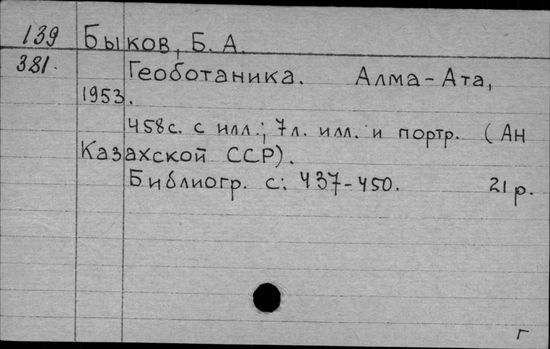 139 Быков, Б. А.
381. Геоботаника. Алма-Ата,
1953.
458с. с илл.; 7л. илл. и портр. (Ан
Казахской ССР).
Библиогр. с: 437-450. 21 р.
г